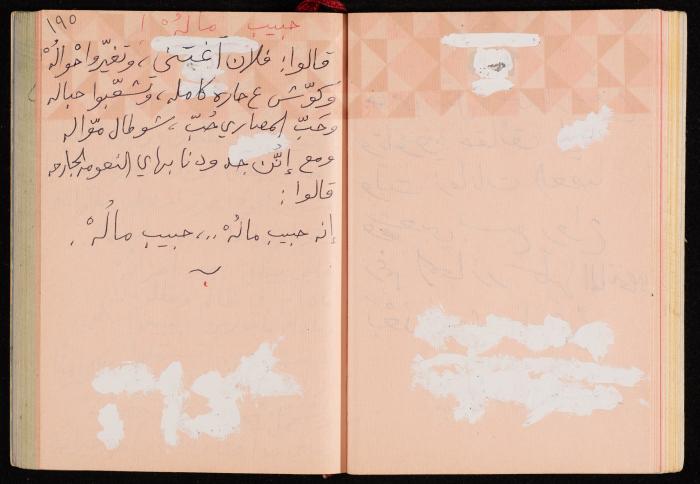 ١٩٥
حبيب مالُهْ !
قالوا: فلان اغتنى، وتغيّروا حْوالُهْ
وكوّش ع حاره كامله، وتْشعّبوا حباله
وحَبّ المصاري حُبّ، شو طال موّاله
ومع إنُّن جدودنا بهاي النعومه الجارحه
قالوا:
إنه حبيب مالُهْ..، حبيب مالُهْ.